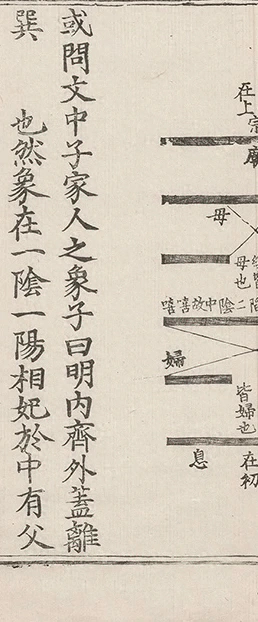 在上宗廟
母
母也
陰二陰中故嘻嘻
婦
皆婦也
在初
息
或問文中子家人之象子曰明内齊外蓋離
巽　也然象在一陰一陽相妃於中有父